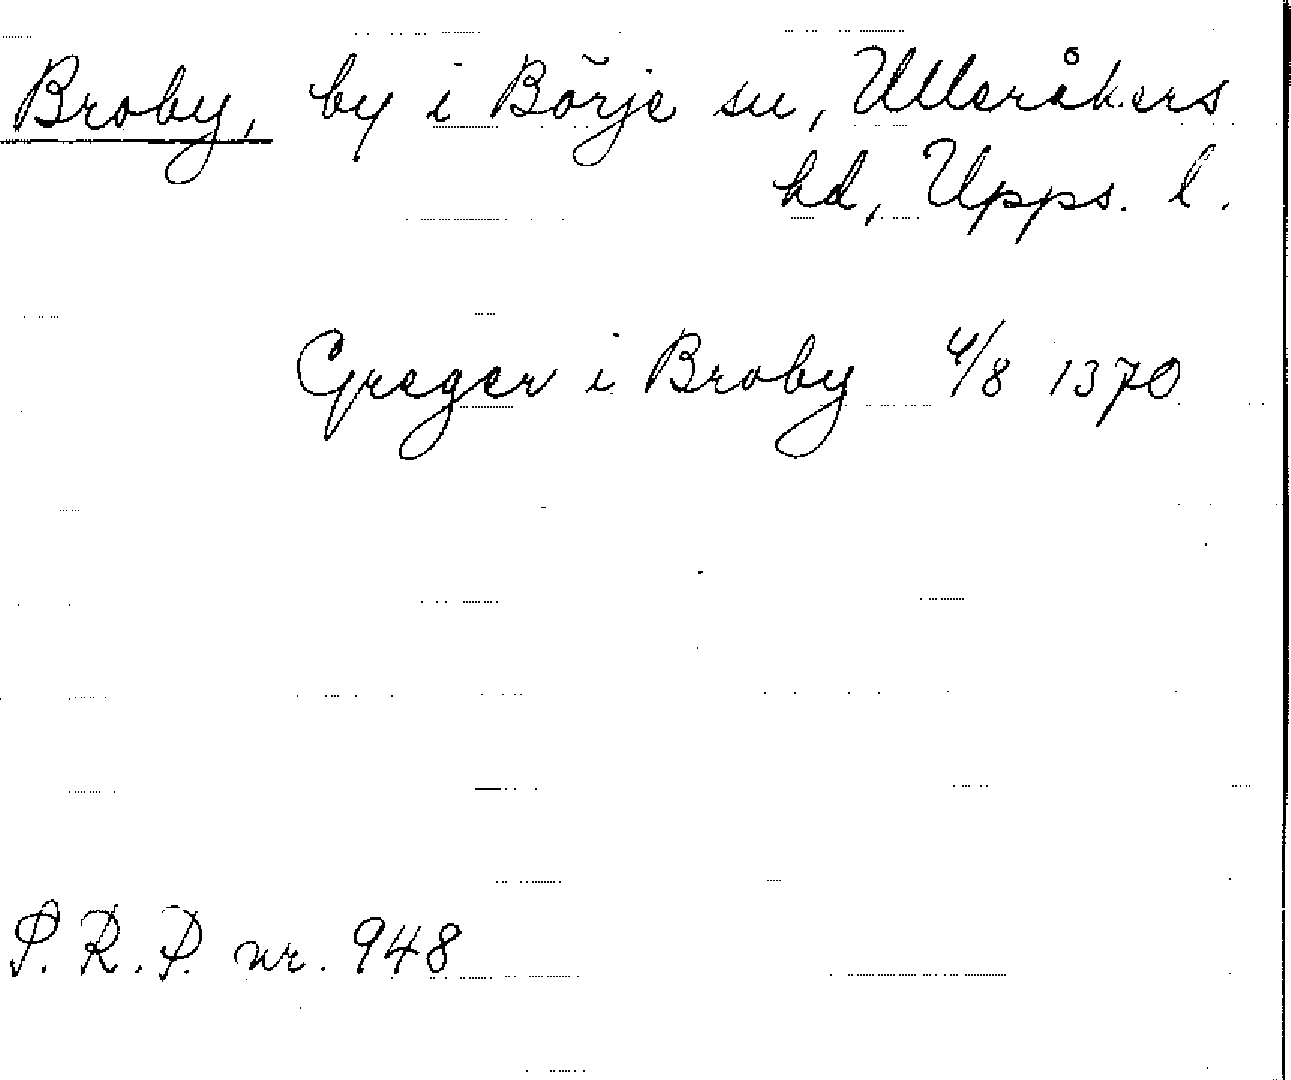 Broby, by i Börje sn, Ulleråkers
hd, Upps. l.
Greger i Broby 4/8 1370
P.R.P. nr. 948